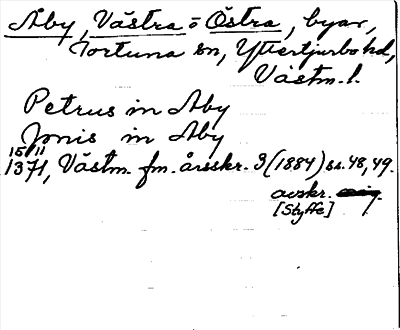 Åby, Västra o Östra, byar,
Tortuna sn, Yttertjurbo hd,
Västm. l.
Petrus in Aby
Jonis in Aby
15/11
1371, Västm. fm. årsskr. 9 (1884) ss. 48, 49.
avskr.
[Styffe]